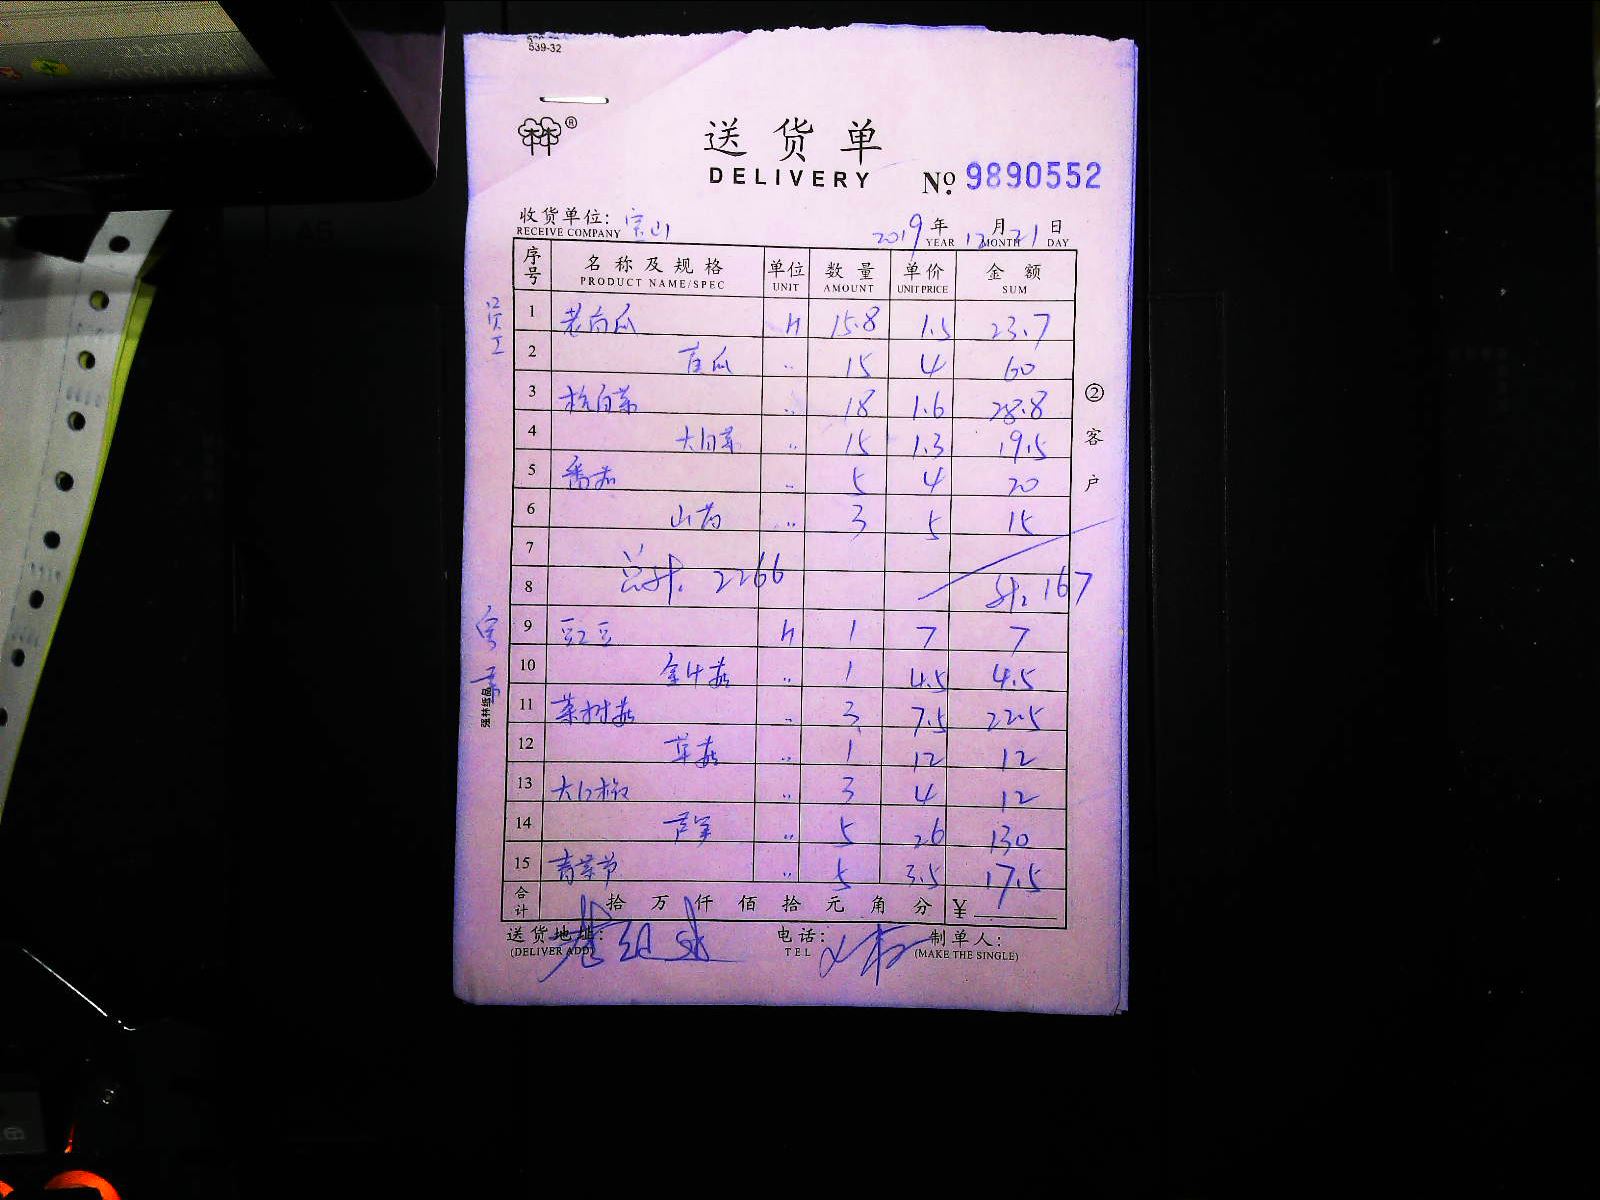 539-32
®
送货单
DELIVERY
No. 9890552
收货单位: 宝山
RECEIVE COMPANY
2019 年 YEAR 12 月 MONTH 21 日 DAY
序号 名称及规格 PRODUCT NAME/SPEC 单位 UNIT 数量 AMOUNT 单价 UNIT PRICE 金额 SUM
员工
1 老南瓜 斤 15.8 1.5 23.7
2 苦瓜 〃 15 4 60
3 杭白菜 〃 18 1.6 28.8
4 大白菜 〃 15 1.3 19.5
5 番茄 〃 5 4 20
6 山药 〃 3 5 15
7
8 总计: 2266 计: 167
9 豇豆 斤 1 7 7
10 金针菇 〃 1 4.5 4.5
11 茶树菇 〃 3 7.5 22.5
12 草菇 〃 1 12 12
13 大红椒 〃 3 4 12
14 芦笋 〃 5 26 130
15 青菜节 〃 5 3.5 17.5
合计 拾 万 仟 佰 拾 元 角 分 ¥
送货地址:
(DELIVER ADD)
电话:
TEL
制单人:
(MAKE THE SINGLE)
②客户
强林纸品